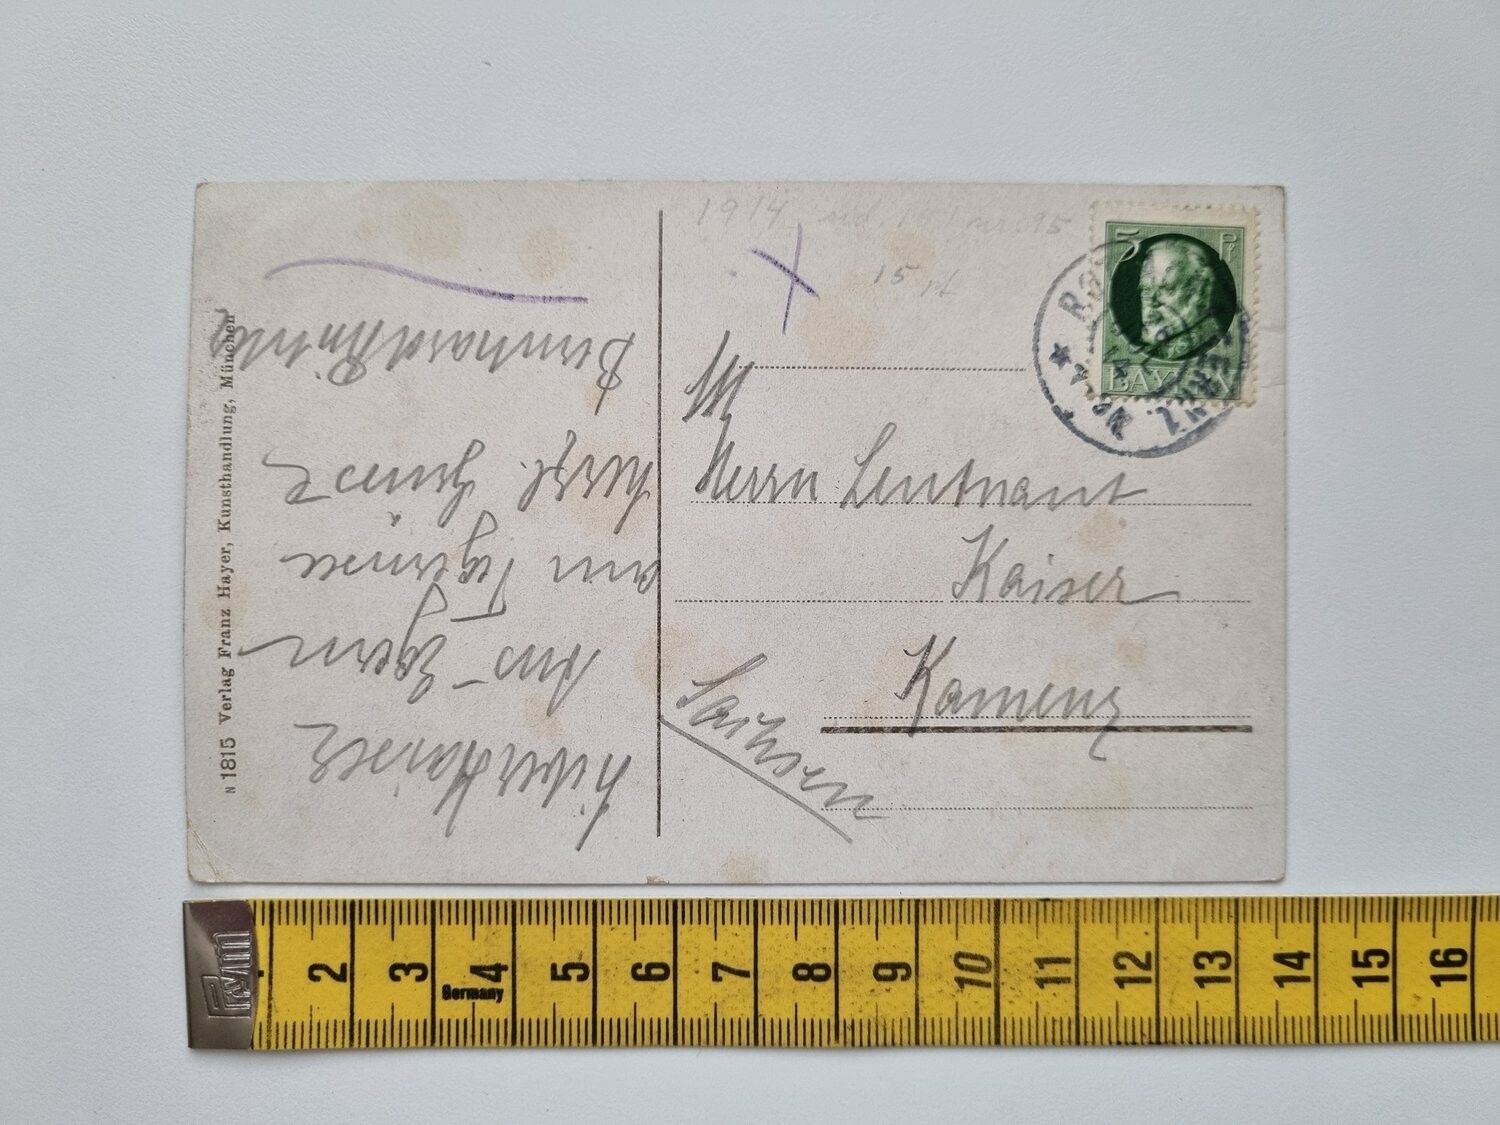 1914
15
5 Pf
BAYERN
Herrn Leutnant
Kaiser
Kamenz
Sachsen
Lieber Kaiser
Aus Egern
am Tegernsee
herzl. Grüsse
Bernhard
N 1815 Verlag Franz Hayer, Kunsthandlung, München
Prym
Germany
2 3 4 5 6 7 8 9 10 11 12 13 14 15 16